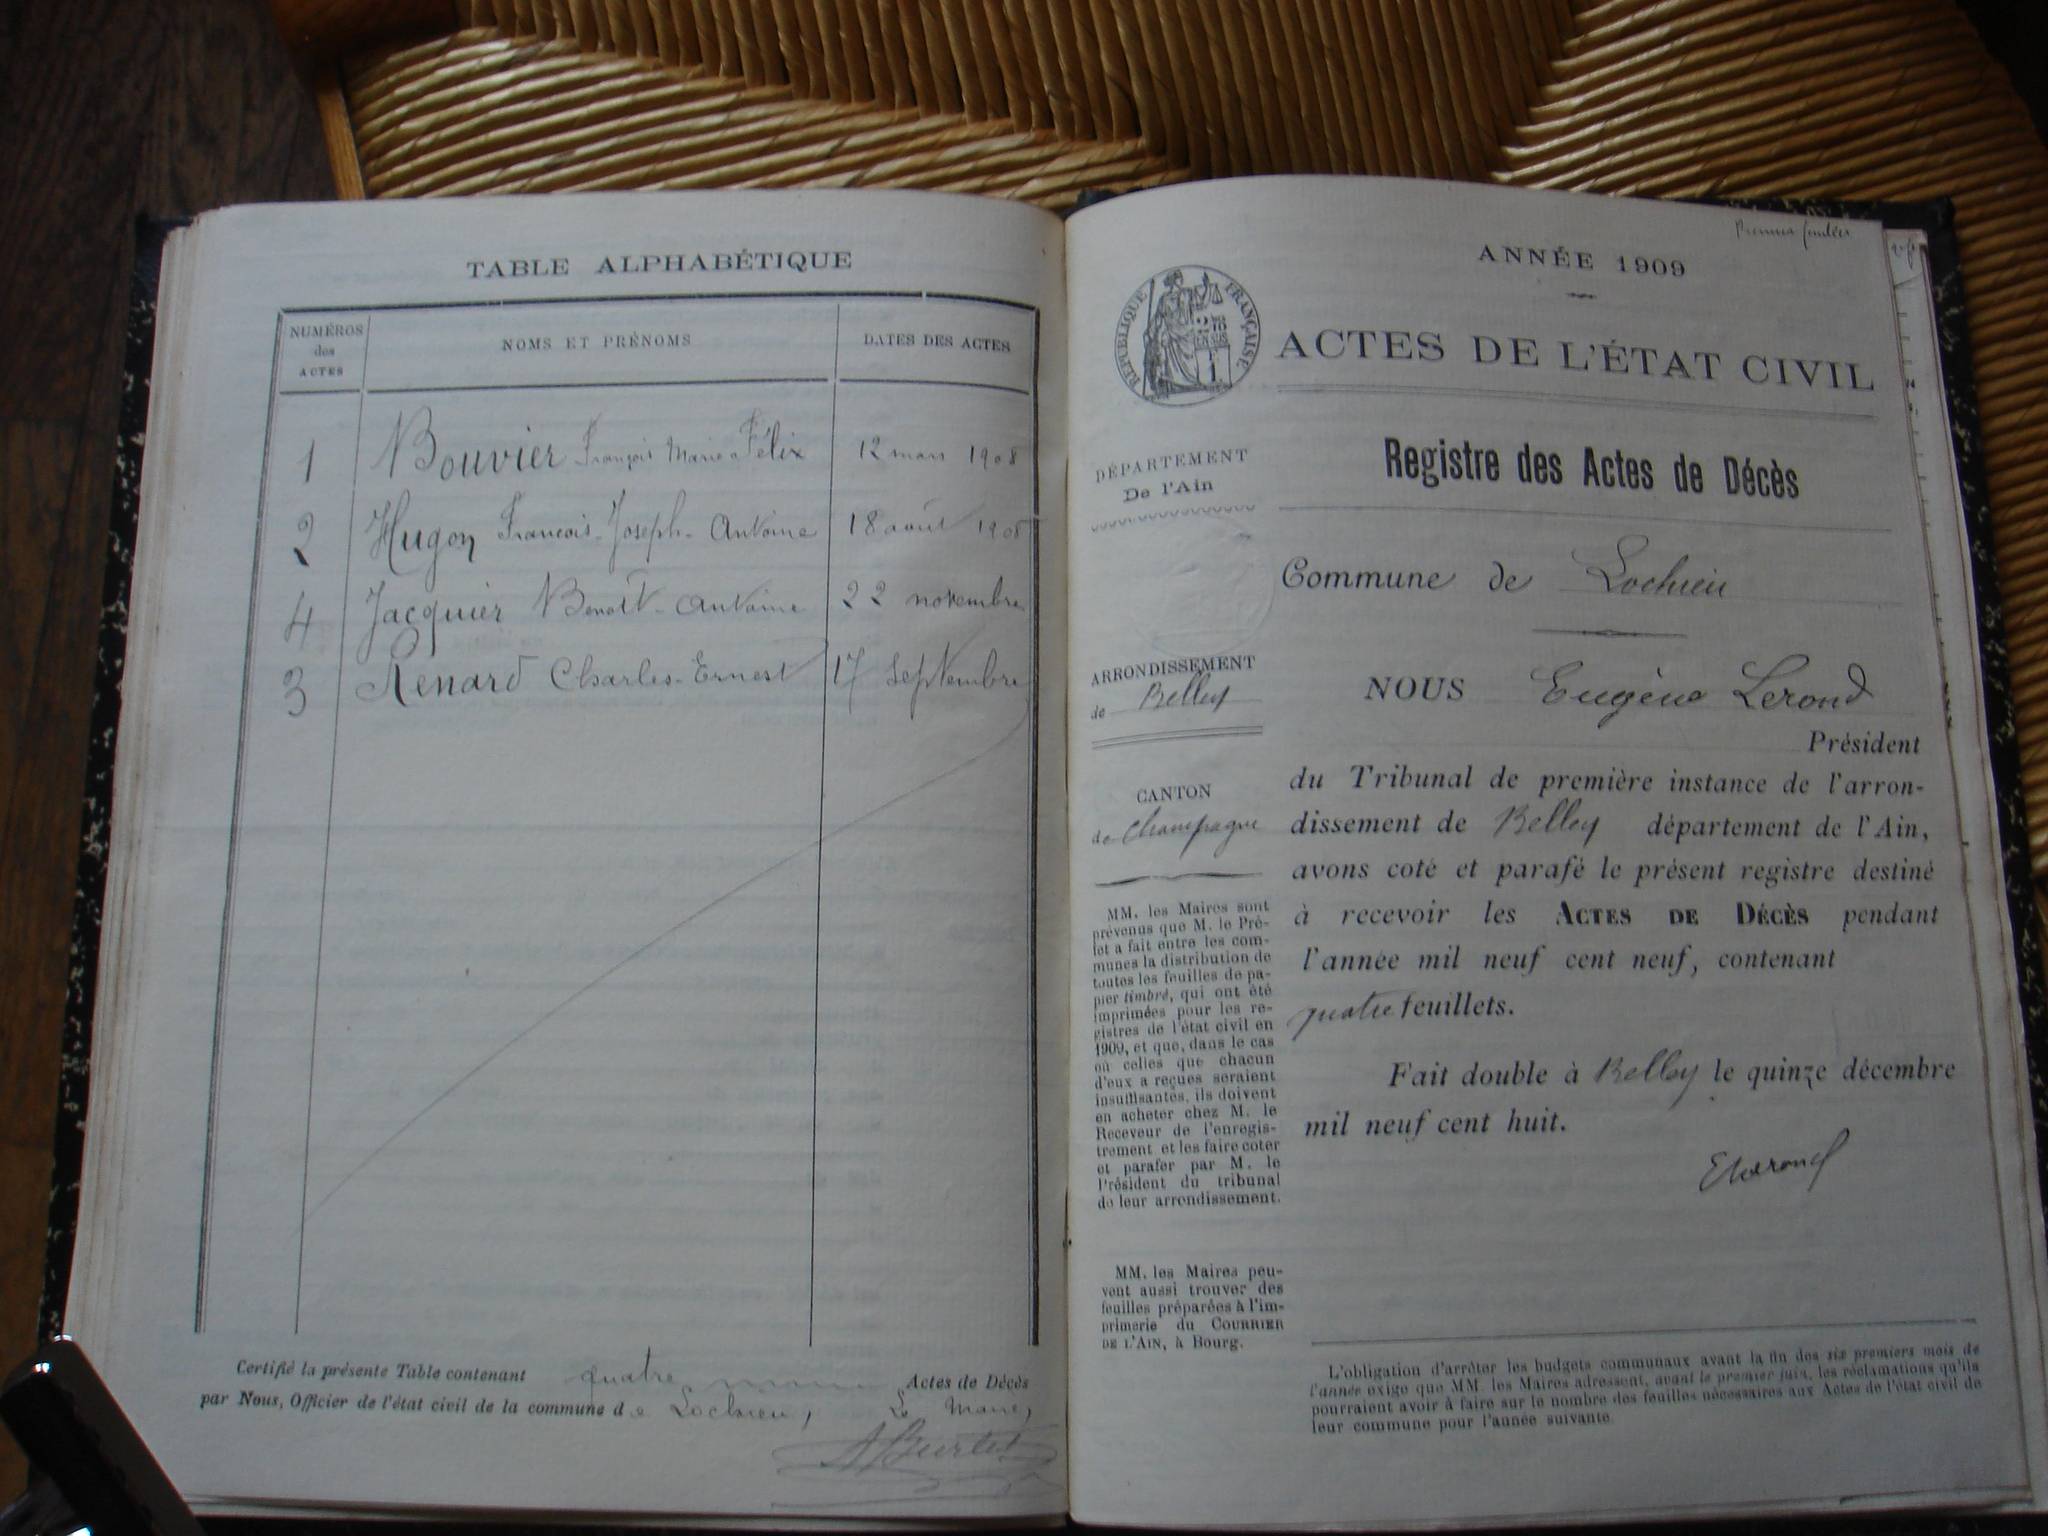 TABLE ALPHABÉTIQUE
NUMÉROS des ACTES
NOMS ET PRÉNOMS
DATES DES ACTES
1 Bouvier François Marie Félix 12 mars 1908
2 Hugon Francois-Joseph-Antoine 18 août 1908
4 Jacquier Benoît-Antoine 22 novembre
3 Renard Charles-Ernest 17 septembre
Certifié la présente Table contenant quatre Actes de Décès
par Nous, Officier de l'état civil de la commune de Lochieu, Le Maire,
ANNÉE 1909
RÉPUBLIQUE FRANÇAISE
ACTES DE L'ÉTAT CIVIL
DÉPARTEMENT
De l'Ain
ARRONDISSEMENT
de Belley
CANTON
de Champagne
MM. les Maires sont
prévenus que M. le Pré-
fet a fait entre les com-
munes la distribution de
toutes les feuilles de pa-
pier timbré, qui ont été
imprimées pour les re-
gistres de l'état civil en
1909, et que, dans le cas
où celles que chacun
d'eux a reçues seraient
insuffisantes, ils doivent
en acheter chez M. le
Receveur de l'enregis-
trement et les faire coter
et parafer par M. le
Président du tribunal
de leur arrondissement.
MM. les Maires peu-
vent aussi trouver des
feuilles préparées à l'im-
primerie du COURRIER
DE L'AIN, à Bourg.
Registre des Actes de Décès
Commune de Lochieu
NOUS Eugène Lerond
Président
du Tribunal de première instance de l'arron-
dissement de Belley département de l'Ain,
avons coté et parafé le présent registre destiné
à recevoir les ACTES DE DÉCÈS pendant
l'année mil neuf cent neuf, contenant
quatre feuillets.
Fait double à Belley le quinze décembre
mil neuf cent huit.
ELerond
L'obligation d'arrêter les budgets communaux avant la fin des six premiers mois de
l'année exige que MM. les Maires adressent, avant le premier juin, les réclamations qu'ils
pourraient avoir à faire sur le nombre des feuilles nécessaires aux Actes de l'état civil de
leur commune pour l'année suivante.